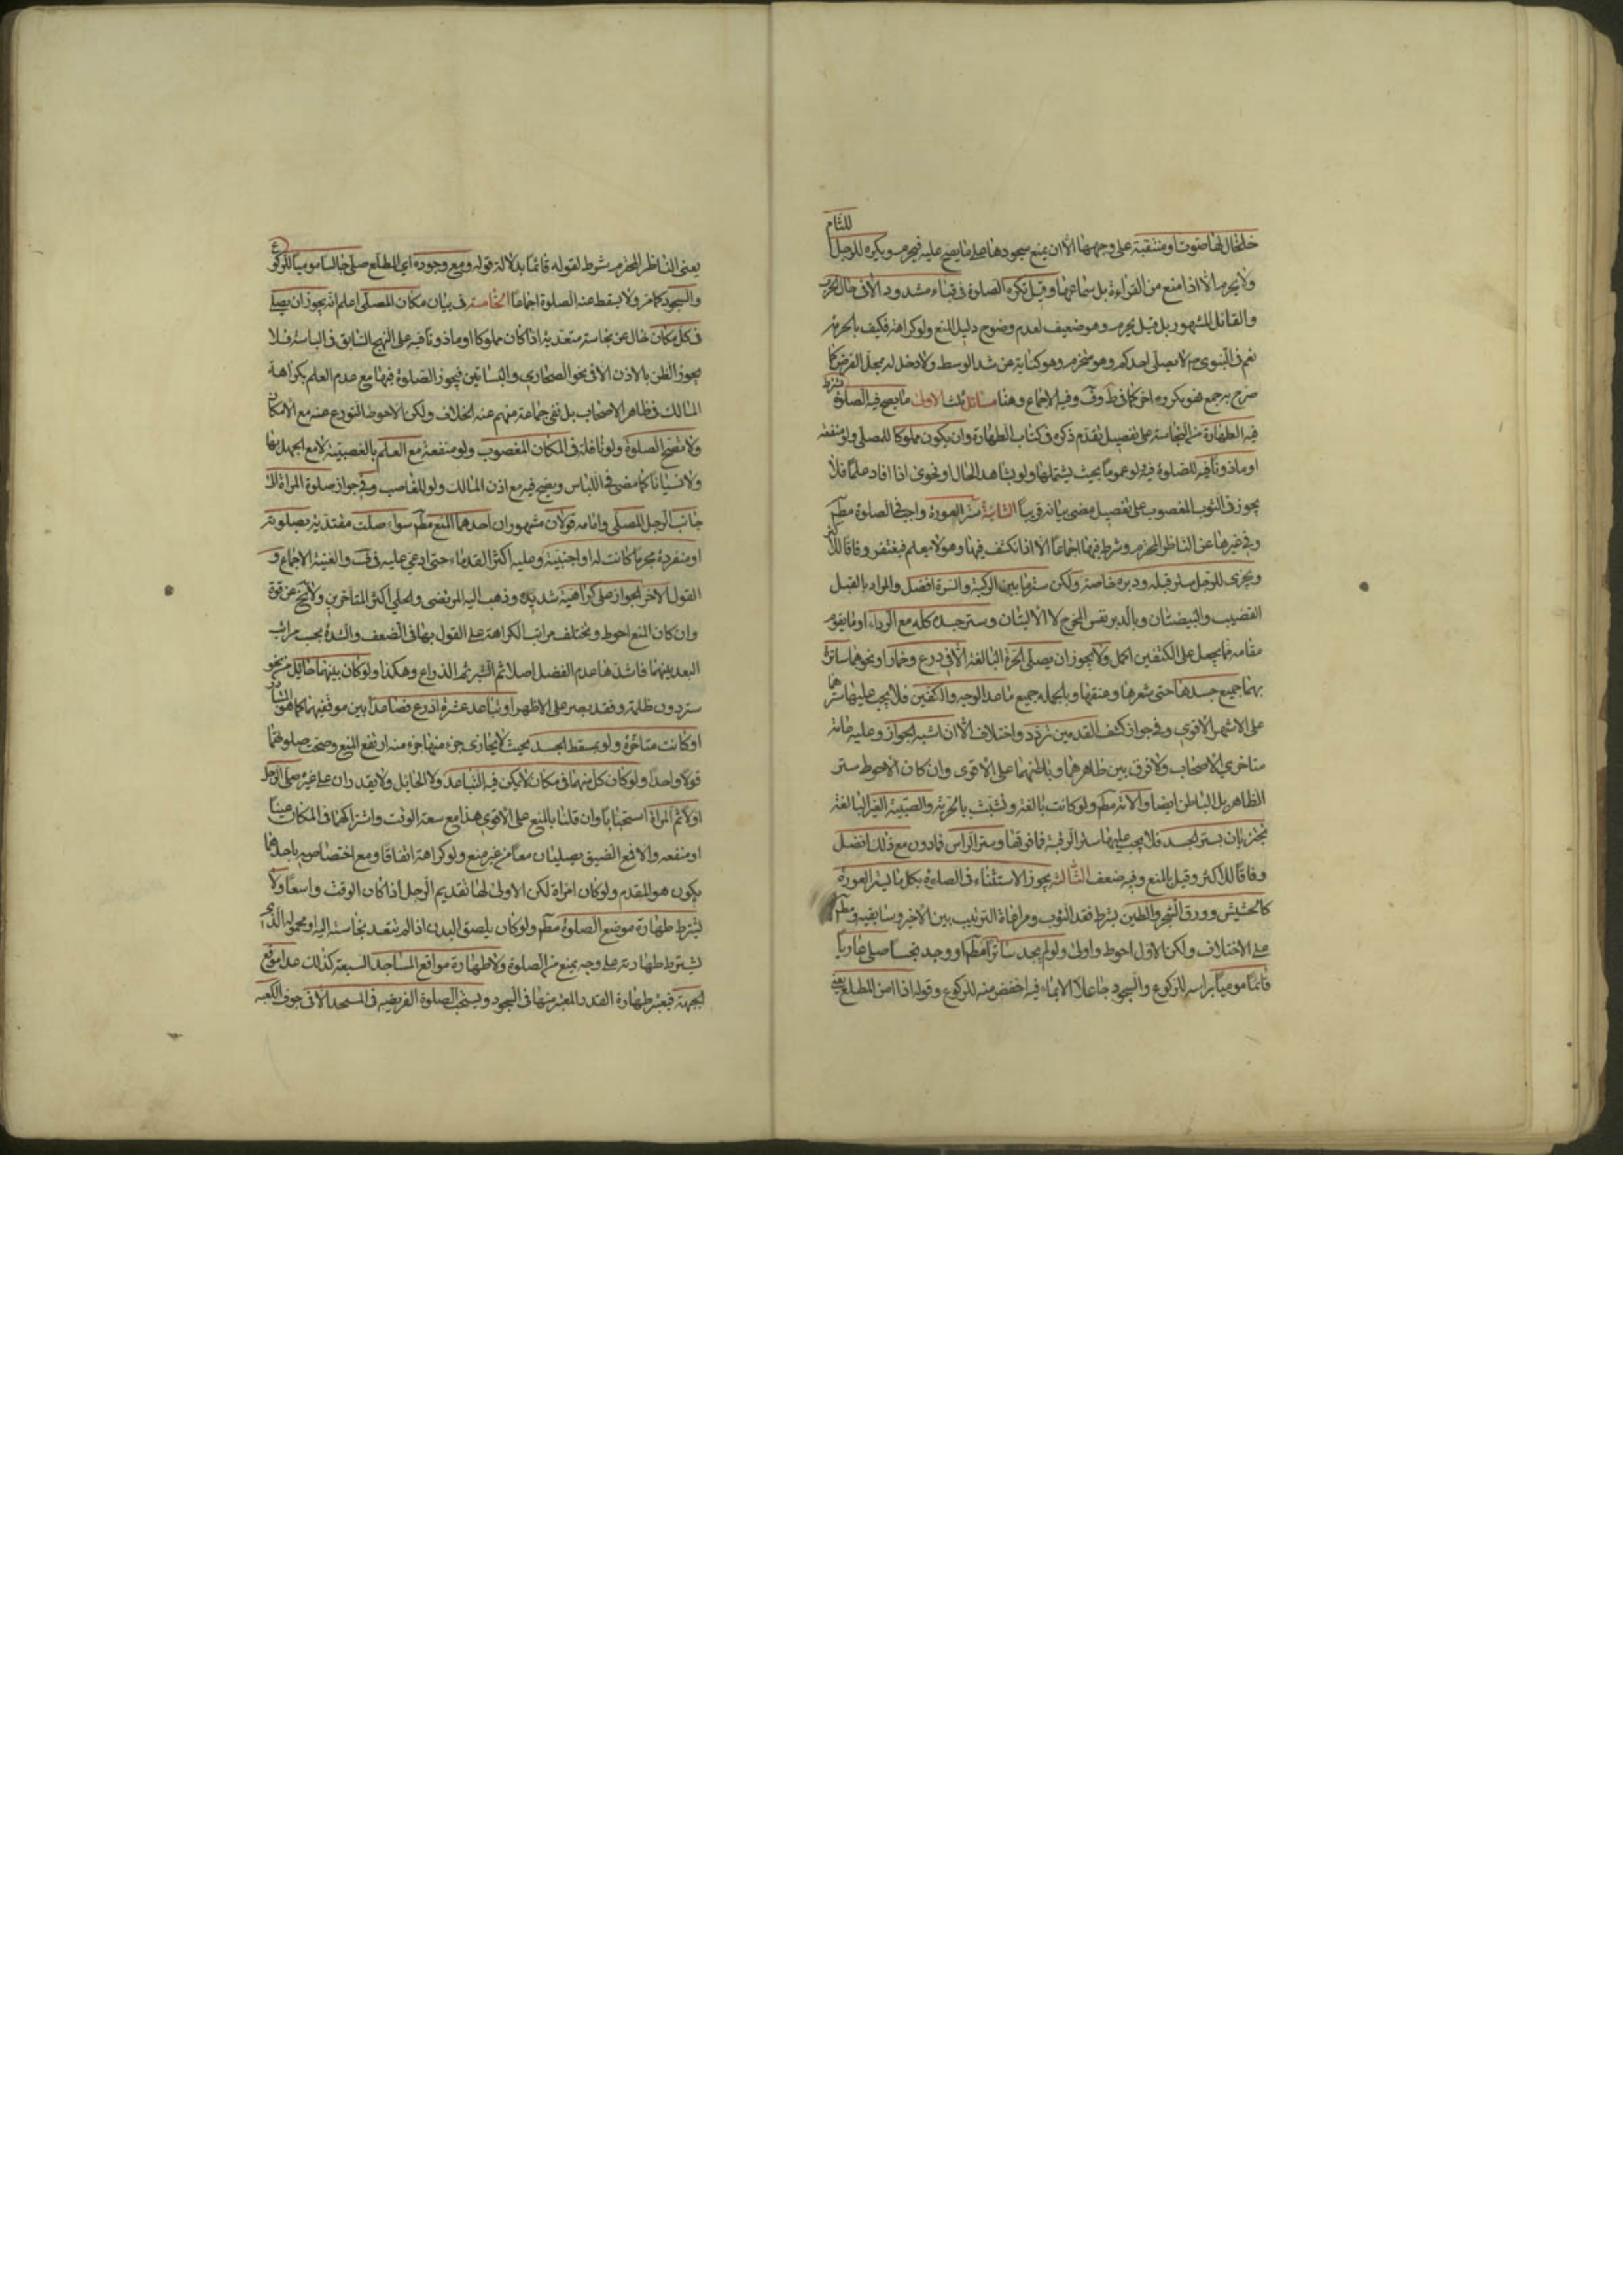 خلخال لها صوت او متنقبة على وجهها الا ان يمنع سجودها على ما يصح عليه فيحرم ويكره للرجل اللثام
ولا يحرم الا اذا منع من القراءة بل سماعها وقيل تكره الصلوة فى قباء مشدود الا فى حال الحرب
والقائل المشهور بل قيل يحرم وهو ضعيف لعدم وضوح دليل المنع ولو كراهة فكيف بالحرمة
نعم فى النبوى لا يصلى احدكم وهو محزم وهو كناية عن شد الوسط ولا دخل له بمحل الفرض كما
صرح به جمع فهو مكروه اخر كما فى ط وف وفيه الاجماع وهنا مسائل ثلث الاولى ما يصح فيه الصلوة يشترط
فيه الطهارة من النجاسة على تفصيل تقدم ذكره فى كتاب الطهارة وان يكون مملوكا للمصلى ولو منفعة
او ماذونا فيه للصلوة فيه ولو عموما بحيث يشتملها ولو بشاهد الحال او فحوى اذا افاد علما فلا
يجوز فى الثوب المغصوب على تفصيل مضى بيانه قريبا الثانية ستر العورة واجب فى الصلوة مطم
وفى غيرها عن الناظر المحترم وشرط فيها اجماعا الا اذا انكشف فيها وهو لا يعلم فيغتفر وفاقا للاكثر
ويجزى للرجل ستر قبله ودبره خاصة ولكن ستر ما بين الركبة والسرة افضل والمراد بالقبل
القضيب والبيضتان وبالدبر نفس المخرج لا الاليتان وستر جسده كله مع الرداء او ما يقوم
مقامه مما يجعل على الكتفين اكمل ولا يجوز ان يصلى الحرة البالغة الا فى درع وخمار او نحوهما ساترة
بهما جميع جسدها حتى شعرها وعنقها وبالجملة جميع ما عدا الوجه والكفين فلا يجب عليها سترهما
على الاشهر الاقوى وفى جواز كشف القدمين تردد واختلاف الا ان اشبه الجواز وعليه عامة
متاخرى الاصحاب ولا فرق بين ظاهرهما وباطنهما على الاقوى وان كان الاحوط ستر
الظاهر بل الباطن ايضا والامة مطم ولو كانت بالغة وتشبثت بالحرية والصبية الغير البالغة
تجتزيان بستر الجسد فلا يجب عليهما ستر الرقبة فما فوقها وستر الراس فما دون مع ذلك افضل
وفاقا للاكثر وقيل بالمنع وفيه ضعف الثالثة يجوز الاستتار فى الصلوة بكل ما يستر العورة
كالحشيش وورق الشجر والطين بشرط فقد الثوب ومراعاة الترتيب بين الاخير وسابقيه ومطم
على الاختلاف ولكن الاول احوط واولى ولو لم يجد ساترا مطم او وجد نجسا صلى عاريا
قائما موميا براسه للركوع والسجود جاعلا الايماء فيه اخفض منه للركوع وقوله اذا امن المطلع يعنى
يعنى الناظر المحترم شرط لقوله قائما بدلالة قوله ومع وجوده اى المطلع صلى جالسا موميا للركوع
والسجود كما مر ولا يسقط عنه الصلوة اجماعا الخامسة فى بيان مكان المصلى اعلم انه يجوز ان يصلى
فى كل مكان خال عن نجاسة متعدية اذا كان مملوكا او ماذونا فيه على النهج السابق فى الباسة فلا
يجوز الظن بالاذن الا فى نحو الصحارى والبساتين فيجوز الصلوة فيها مع عدم العلم بكراهة
المالك فى ظاهر الاصحاب بل نفى جماعة منهم عنه الخلاف ولكن الاحوط التورع عنه مع الامكان
ولا تصح الصلوة ولو نافلة فى المكان المغصوب ولو منفعة مع العلم بالغصبية لا مع الجهل بها
ولا نسيانا كما مضى فى اللباس ويصح فيه مع اذن المالك ولو للغاصب وفى جواز صلوة المراة الى
جانب الرجل المصلى وامامه قولان مشهوران احدهما المنع مطم سواء صلت مقتدية بصلوته
او منفردة محرما كانت له او اجنبية وعليه اكثر القدماء حتى ادعى عليه فى ف والغنية الاجماع و
القول الاخر الجواز على كراهية شديدة وذهب اليه المرتضى والحلى اكثر المتاخرين ولا يخ عن قوة
وان كان المنع احوط ويختلف مراتب الكراهة على القول بها فى الضعف والشدة بحسب مراتب
البعد بينهما فاشدها عدم الفصل اصلا ثم الشبر ثم الذراع وهكذا ولو كان بينهما حائل من نحو
ستر دون ظلمة وفقد بصر على الاظهر او تباعد عشرة اذرع فصاعدا بين موقفيهما كما هو المتبادر
او كانت متاخرة ولو بمسقط الجسد بحيث لا يحاذى جزء منها جزء منه ارتفع المنع وصحت صلوتهما
قولا واحدا ولو كان كل منهما فى مكان لا يمكن فيه التباعد ولا الحائل ولا يقدران على غيره صلى الرجل
اولا ثم المراة استحبابا وان قلنا بالمنع على الاقوى هذا مع سعة الوقت واشتراكهما فى المكان عينا
او منفعة والا فمع الضيق يصليان معا من غير منع ولو كراهة اتفاقا ومع اختصاصه باحدهما
يكون هو المقدم ولو كان امراة لكن الاولى لها تقديم الرجل اذا كان الوقت واسعا ولا
يشترط طهارة موضع الصلوة مطم ولو كان يلصق البدن اذا لم يتعد نجاسته اليه او محموله الذى
يشترط طهارته على وجه يمنع من الصلوة ولا طهارة مواقع المساجد السبعة كذلك عدا موقع
الجبهة فيعتبر طهارة القدر المعتبر منها فى السجود ويستحب الصلوة الفريضة فى المسجد الا فى جوف الكعبه